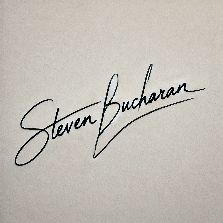 Steven Bucharan